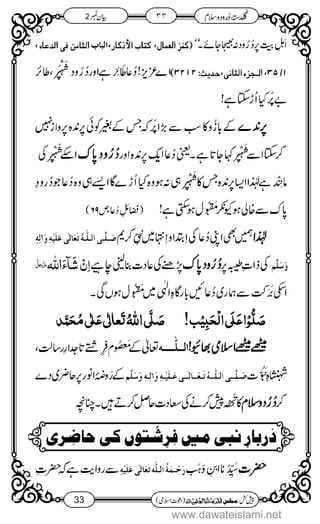 بیان نمبر2 ۳۳ گلدستۂ دُرود و سلام
اہلِ بیت پر دُرُود نہ بھیجا جائے۔‘‘ (کنز العمال، کتاب الأذکار، الباب الثامن فی الدعاء،
۳۵/۱، الجزء الثانی، حدیث: ۳۲۱۲) اے عزیز! دُعا طائِر ہے اور دُرُود شَہْپَر، طائر
بے پَر کیا اُڑ سکتا ہے!
پرندے کے بازو کا سب سے بڑا پَر کہ جس کے بغیر کوئی پرندہ پرواز نہیں
کرسکتا اسے شَہْپَر کہا جاتا ہے۔ یعنی دُعا ایک پرندہ اور دُرُودِ پاک اسکے شَہْپَر کی
مانند ہے لہٰذا ایسا پرندہ جس کا شَہْپَر ہی نہ ہو وہ کیا اُڑے گا ایسے ہی وہ دُعا جو دُرودِ
پاک سے خالی ہو کیونکر مقبول ہوسکتی ہے! (فضائلِ دُعا ص ۶۹)
لہٰذا ہمیں بھی اپنی دُعا کی ابتدا و انتہا میں نبیِّ کریم صَلَّی اللہُ تَعَالٰی عَلَیْہِ وَاٰلِہٖ
وَسَلَّم کی ذات طیبہ پر دُرُودِ پاک پڑھنے کی عادت بنا لینی چاہیے اِنْ شَآءَ اللہ عزوجل
اسکی برکت سے ہماری دُعائیں بارگاہِ الٰہی میں مقبول ہوں گی۔
صَلُّوْا عَلَی الْحَبِیْب! صَلَّی اللہُ تَعَالٰی عَلٰی مُحَمَّد
میٹھے میٹھے اسلامی بھائیو! اللہ تعالٰی کے معصوم فرشتے تاجدارِ رسالت،
شہنشاہِ نبوت صَلَّی اللہُ تَعَالٰی عَلَیْہِ وَاٰلِہٖ وَسَلَّم کے روضۂ انور پر حاضری دے
کر دُرُود و سلام کا تحفہ پیش کرنے کی سعادت حاصل کرتے ہیں۔ چنانچہ
دَربارِ نبی میں فِرِشتوں کی حاضِری
حضرت سیّدنا ابن وَہْب رَحْمَۃُ اللہِ تَعَالٰی عَلَیْہِ سے روایت ہے کہ حضرت
33 پیش کش: مجلس المدینۃ العلمیۃ (دعوتِ اسلامی)
www.dawateislami.net